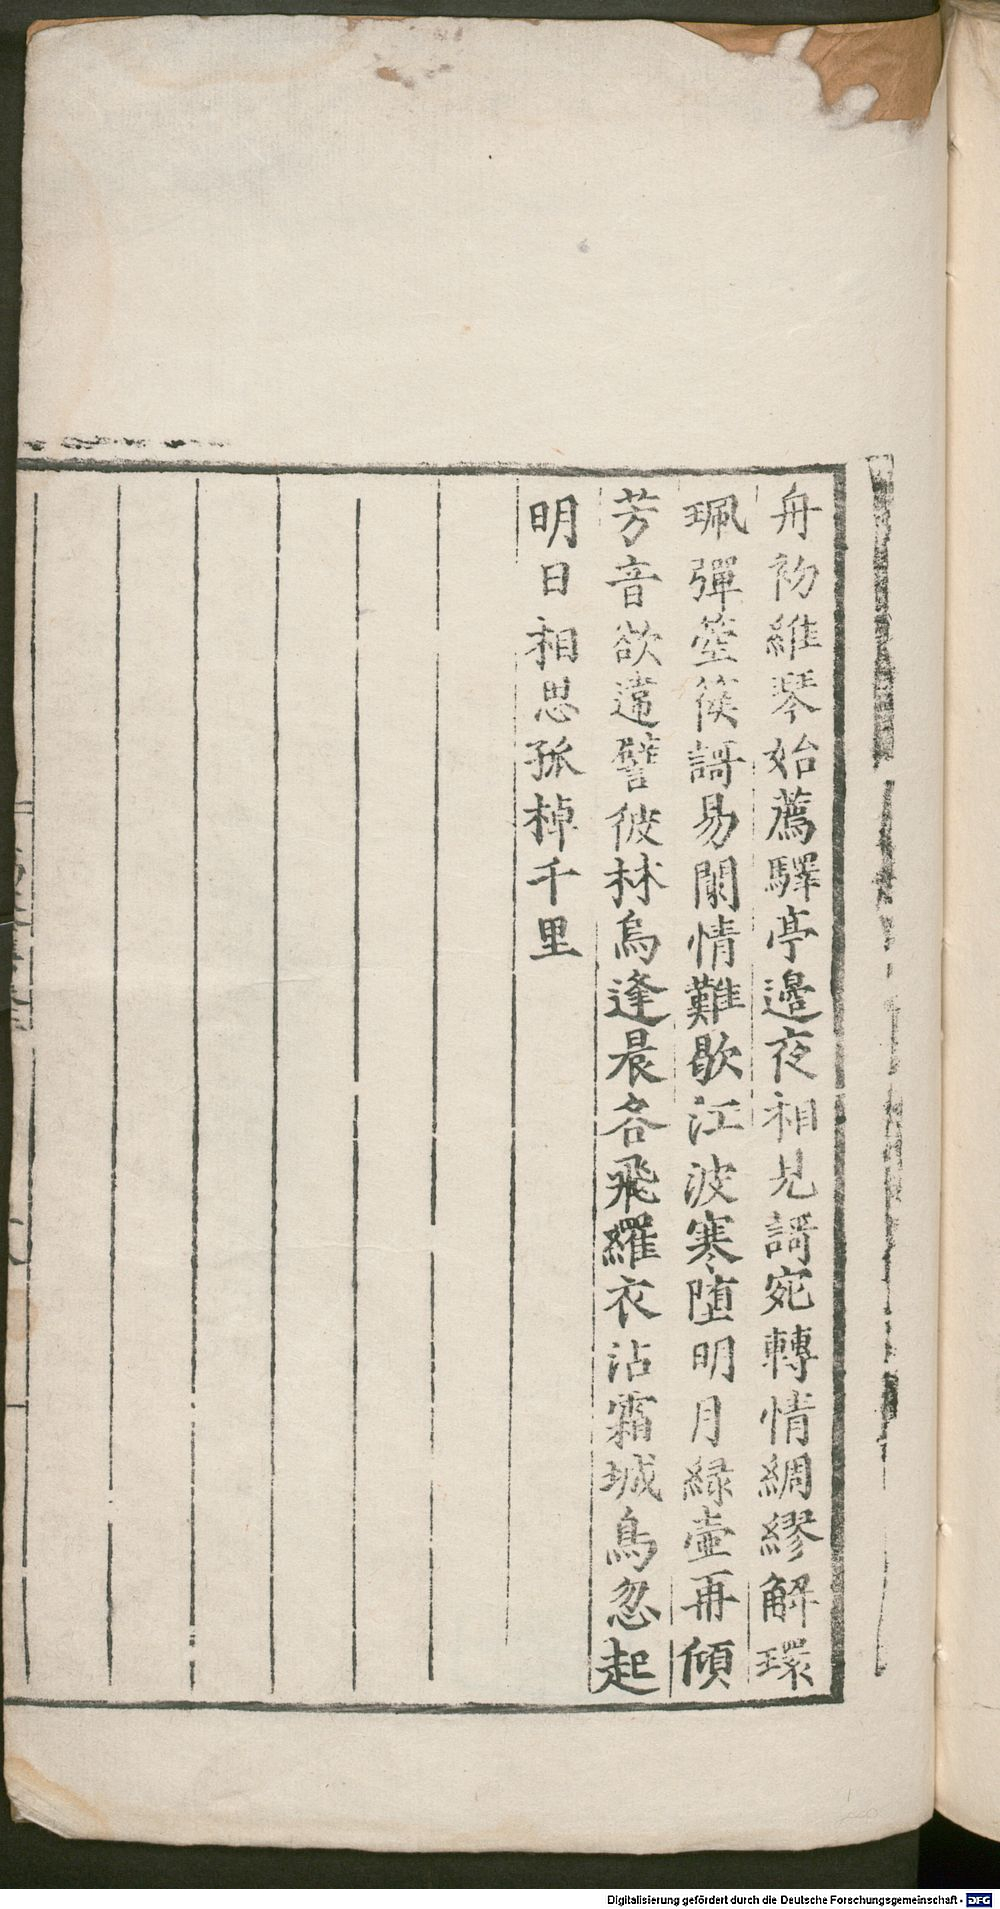 舟初維琴始薦驛亭邉夜相見謌宛轉情綢繆解環
珮彈箜篌謌易闋情難歇江波寒墮明月緑壷再傾
芳音欲違譬彼林烏逢晨各飛羅衣沾霜城烏忽起
明日相思孤棹千里
Digitalisierung gefördert durch die Deutsche Forschungsgemeinschaft - DFG